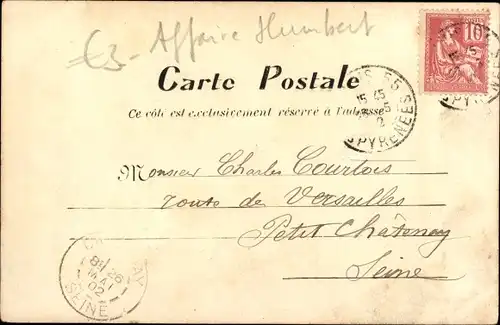 €3 - Affaire Humbert
10
Carte Postale
Ce côté est exclusivement réservé à l'adresse
PYRENEES
PYRENEES
Monsieur Charles Courtois
route de Versailles
Petit Châtenay
Seine
26
MAI
02
SEINE